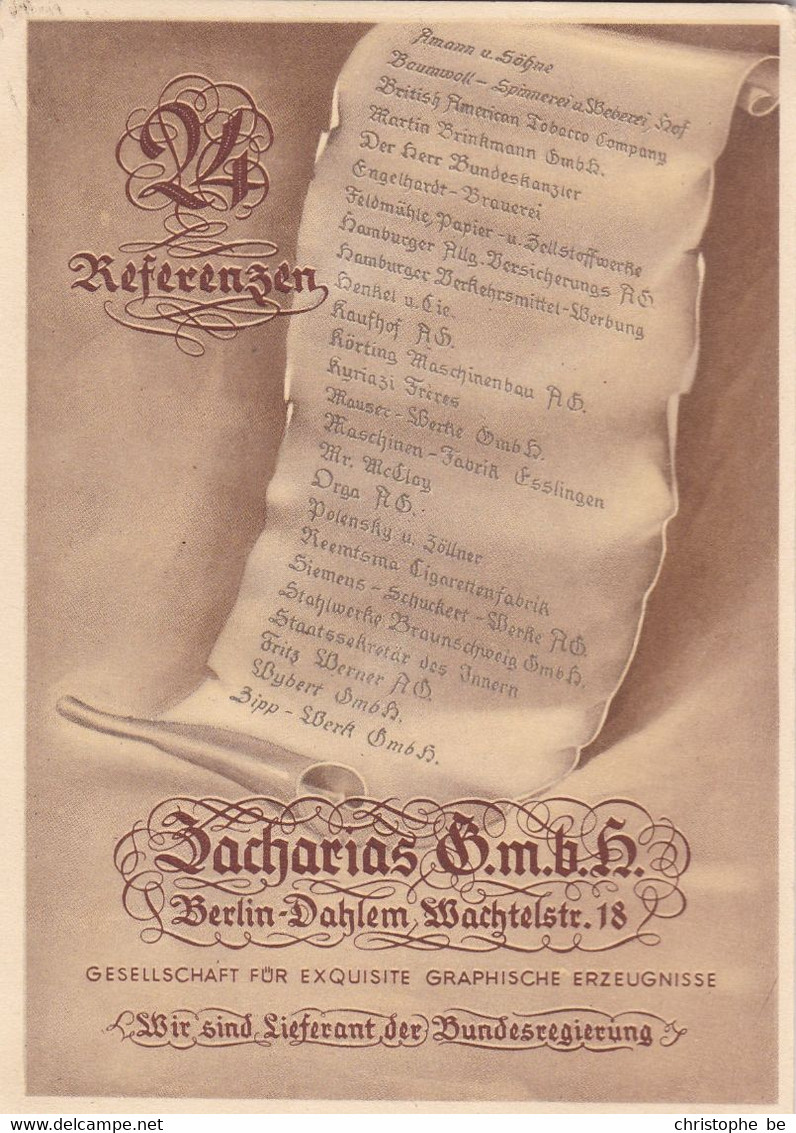 24
Referenzen
Amann u. Söhne
Baumwoll-Spinnerei u. Weberei, Hof
British American Tobacco Company
Martin Brinkmann GmbH.
Der Herr Bundeskanzler
Engelhardt-Brauerei
Feldmühle, Papier- u. Zellstoffwerke
Hamburger Allg. Versicherungs AG.
Hamburger Verkehrsmittel-Werbung
Henkel u. Cie.
Kaufhof AG.
Körting Maschinenbau AG.
Kyriazi Frères
Mauser-Werke GmbH.
Maschinen-Fabrik Esslingen
Mr. McCloy
Orga AG.
Polensky u. Zöllner
Reemtsma Cigarettenfabrik
Siemens-Schuckert-Werke AG.
Stahlwerke Braunschweig GmbH.
Staatssekretär des Innern
Fritz Werner AG.
Wybert GmbH.
Zipp-Werk GmbH.
Zacharias G.m.b.H.
Berlin-Dahlem, Wachtelstr. 18
GESELLSCHAFT FÜR EXQUISITE GRAPHISCHE ERZEUGNISSE
Wir sind Lieferant der Bundesregierung
www.delcampe.net
christophe be